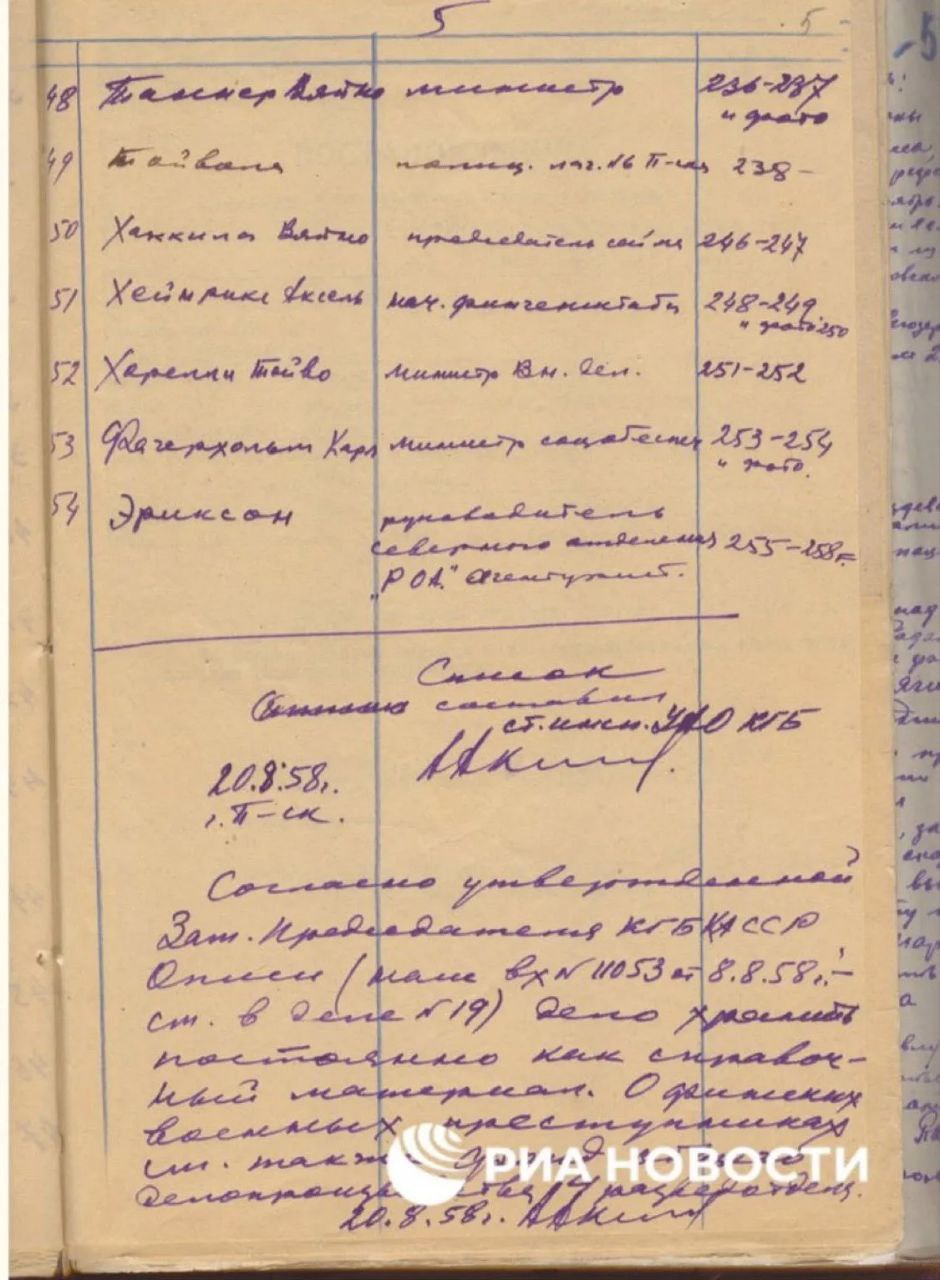 5
5
48 Таннер Вяйно министр 236-237
и фото
49 Тойвола полиц. лаг. №6 П-ска 238-
50 Хаккила Вяйно председатель сейма 246-247
51 Хейнрикс Аксель нач. фингенштаба 248-249
и фото 250
52 Харелли Тойво министр Вн. Дел. 251-252
53 Фагерхольм Карл министр соцобеспеч 253-254
и фото.
54 Эриксон руководитель
северного отделения 255-258г.
„РОА" агентурист.
Список
составил
ст. инсп. УАО КГБ
20.8.58г.
г. П-ск.
Согласно утвержденной
Зам. Председателя КГБ КАССР
Описи (наш вх N 11053 от 8.8.58г.-
см. в деле N 19) дело хранить
постоянно как справоч-
ный материал. О финских
военных преступниках
см. также фонд
РИА НОВОСТИ
20.8.58г.